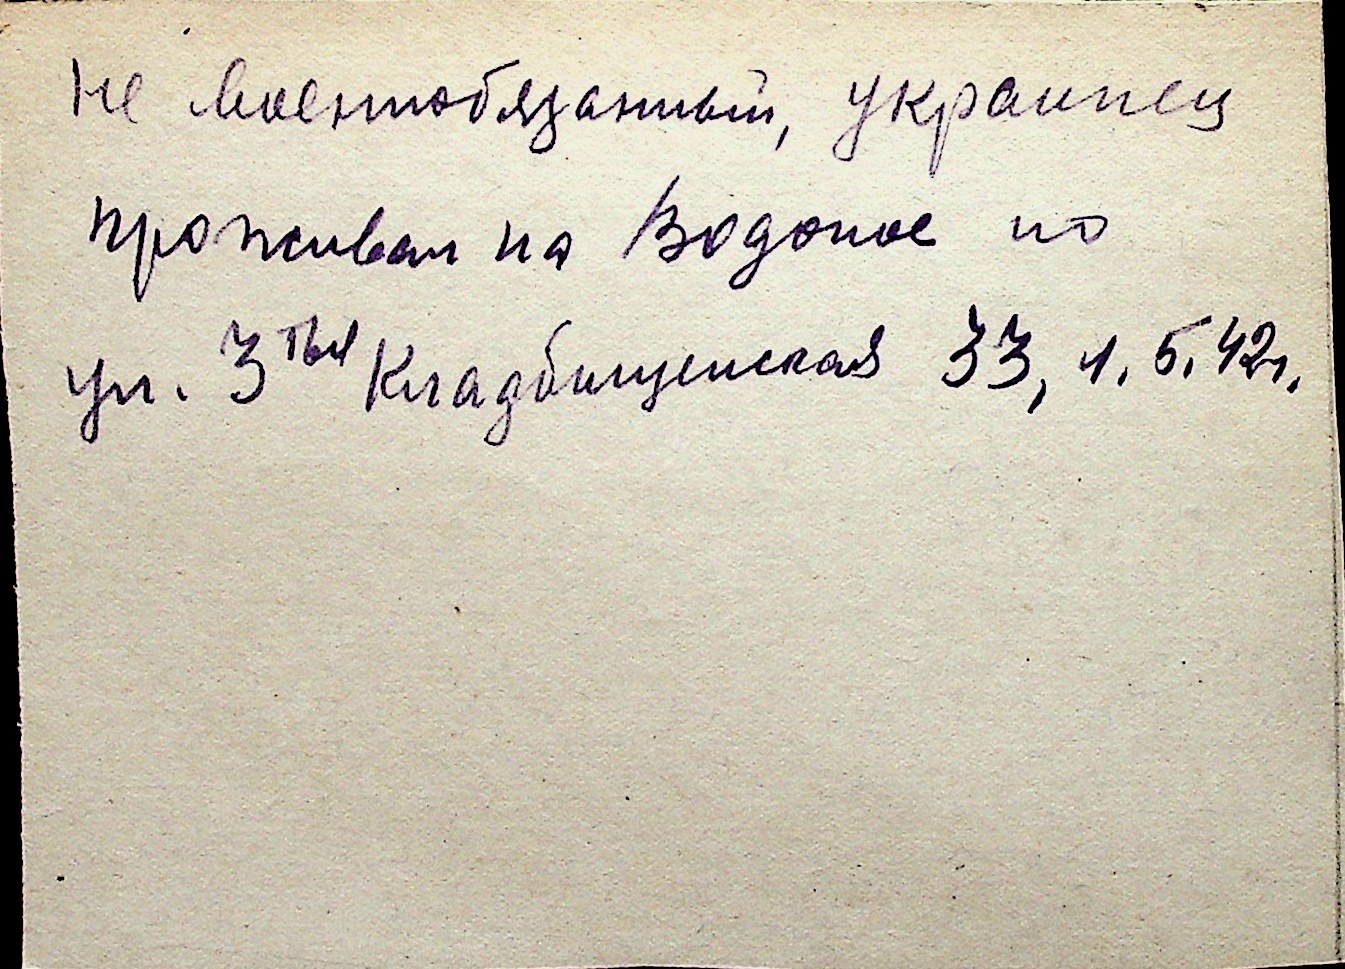 не военнообязанный, украинец
проживал на Водопое по
ул. 3тья Кладбищенская 33, 1.5.42г.